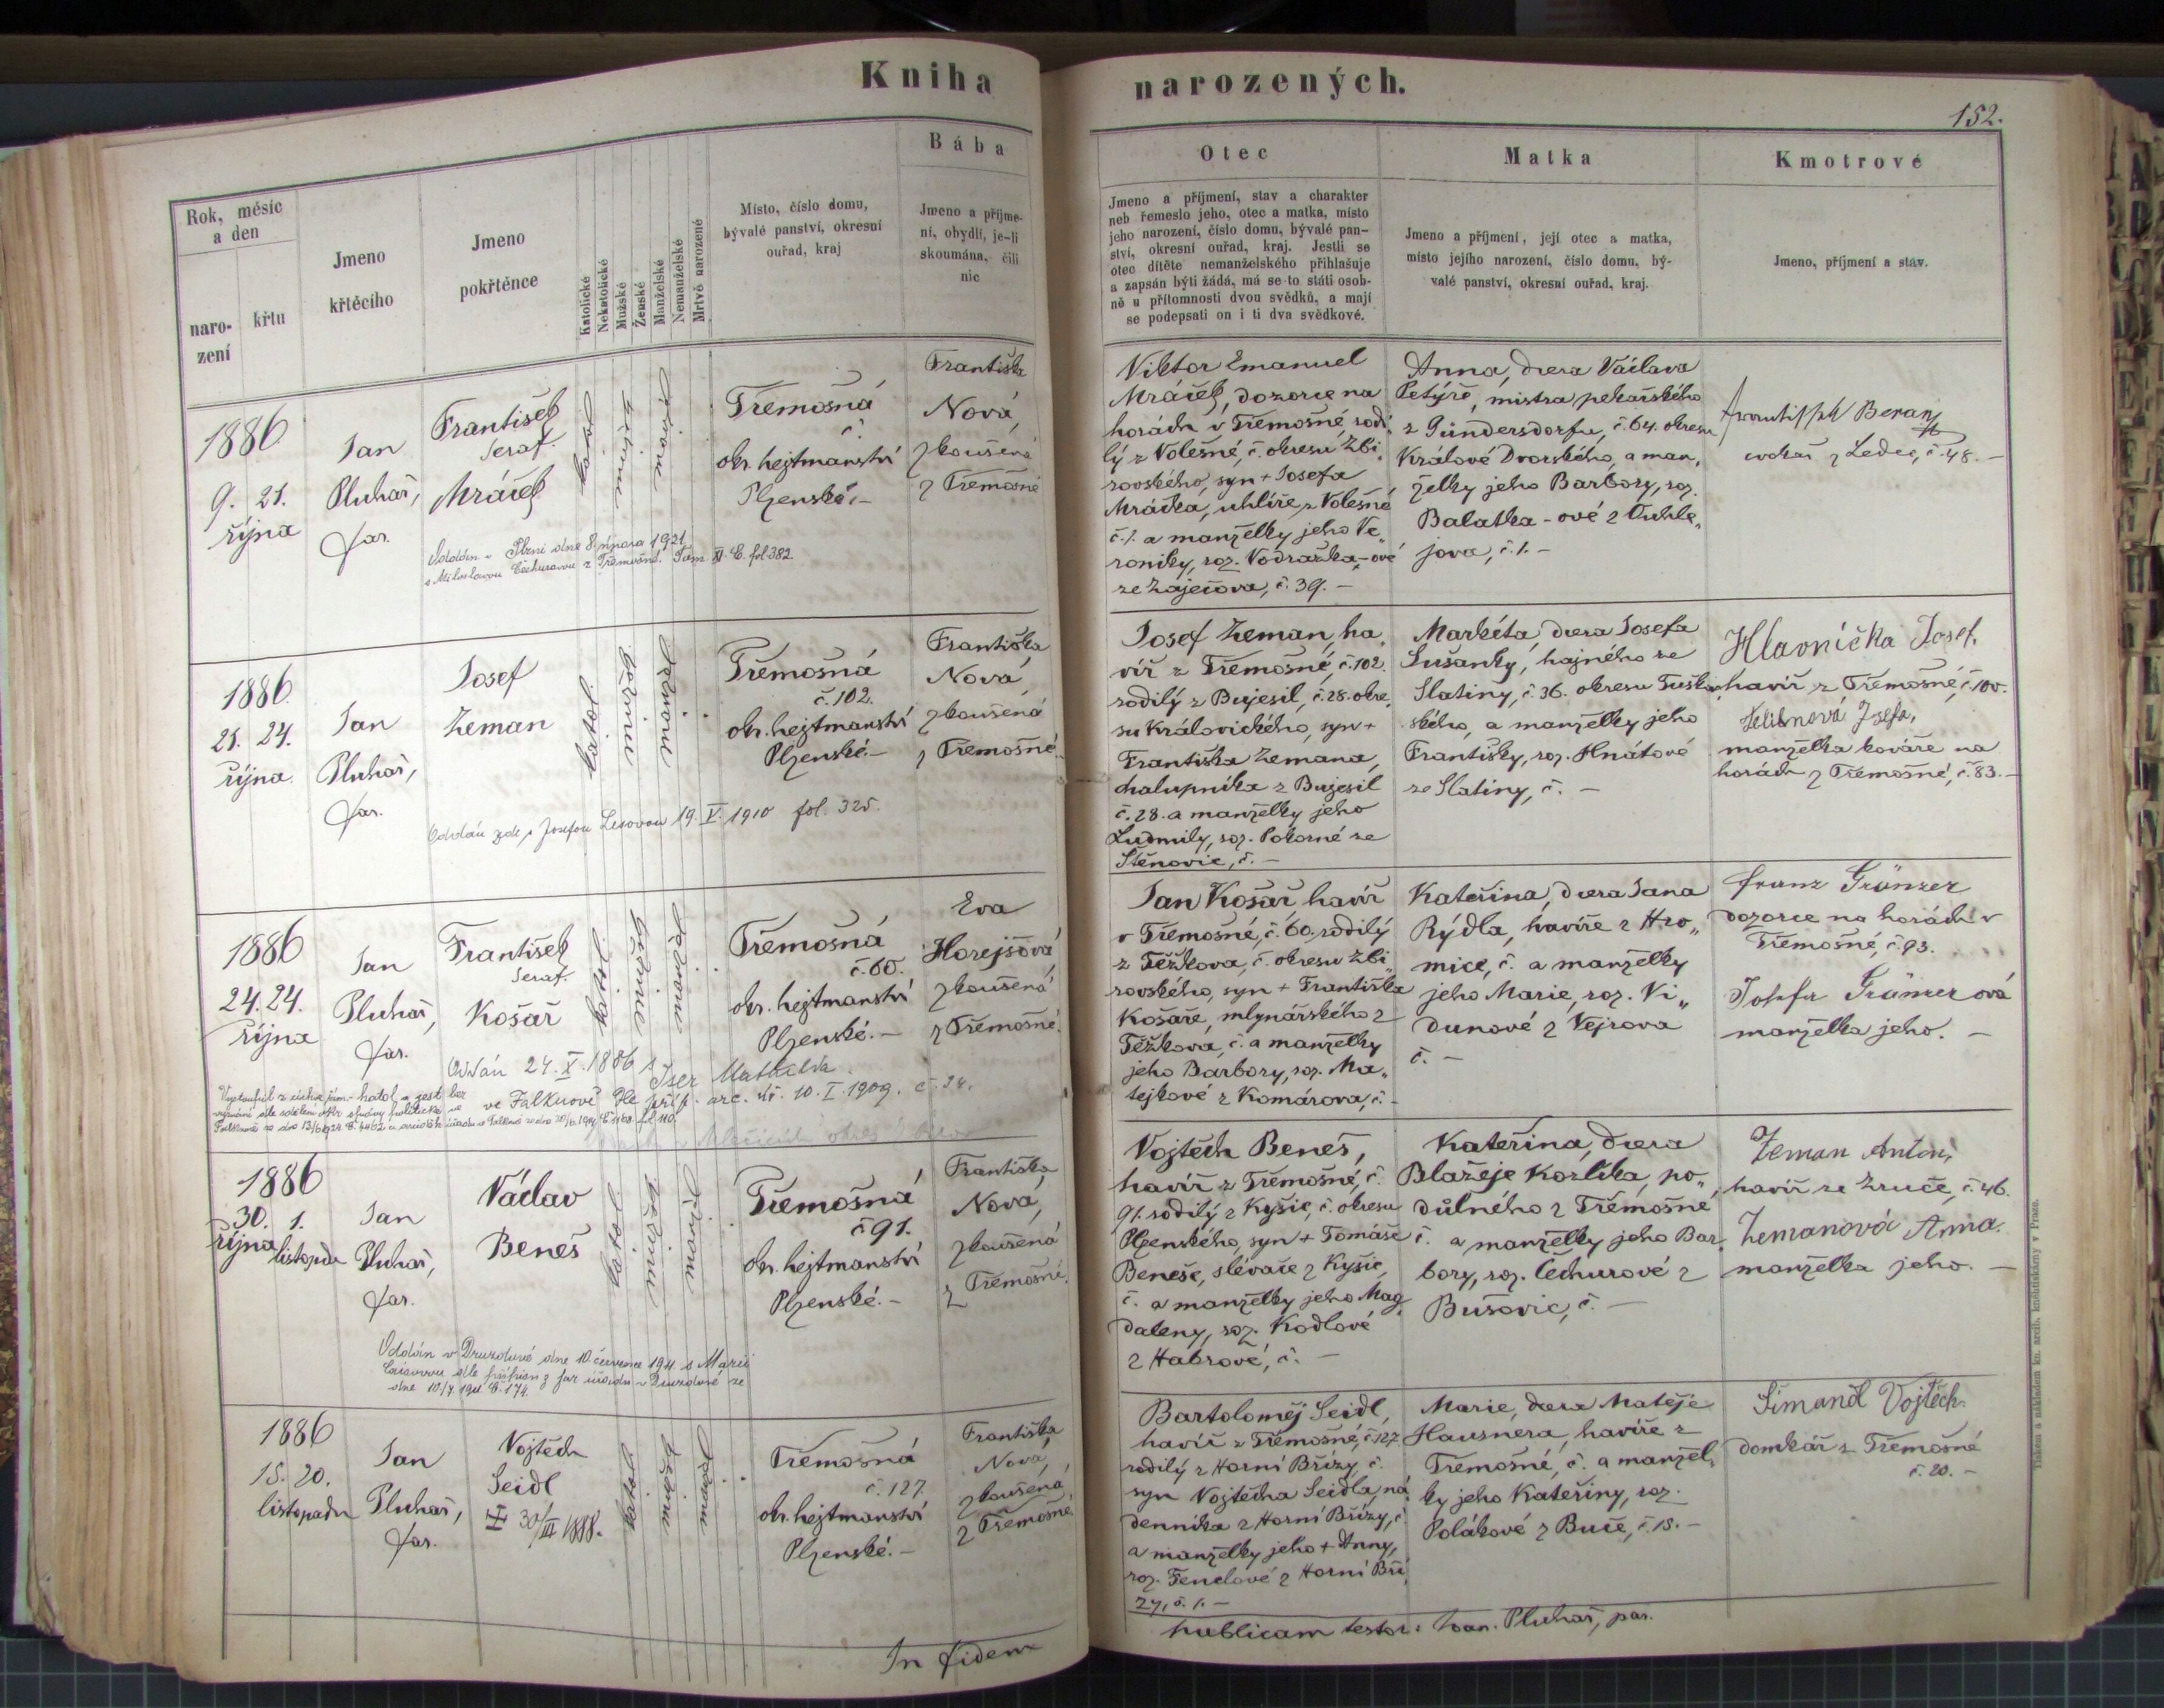 Kniha
narozených.
152.
Rok, měsíc
a den
naro-
zení
křtu
Jmeno
křtěcího
Jmeno
pokřtěnce
Katolické
Nekatolické
Mužské
Ženské
Manželské
Nemanželské
Mrtvě narozené
Místo, číslo domu,
bývalé panství, okresní
ouřad, kraj
Bába
Jmeno a příjme-
ní, obydlí, je-li
skoumána, čili
nic
Otec
Jmeno a příjmení, stav a charakter
neb řemeslo jeho, otec a matka, místo
jeho narození, číslo domu, bývalé pan-
ství, okresní ouřad, kraj. Jestli se
otec dítěte nemanželského přihlašuje
a zapsán býti žádá, má se to státi osob-
ně u přítomnosti dvou svědků, a mají
se podepsati on i ti dva svědkové.
Matka
Jmeno a příjmení, její otec a matka,
místo jejího narození, číslo domu, bý-
valé panství, okresní ouřad, kraj.
Kmotrové
Jmeno, příjmení a stav.
1886
9. 21.
října
Jan
Pluhař,
far.
František
Seraf.
Mráček
Oddán v Plzni dne 8. února 1921
s Miloslavou Čechurovou z Třemošné. Tom XI C. fol. 382.
Třemošná
č.
okr. hejtmanství
Plzenské.-
Františka
Nová,
zkoušená
z Třemošné
Viktor Emanuel
Mráček, dozorce na
horách v Třemošné, rodi-
lý z Volešné, č. okresu Zbi-
rovského, syn + Josefa
Mráčka, uhlíře z Volešné
č. 1. a manželky jeho Ve-
roniky, roz. Vodražka-ové
ze Zaječova, č. 39. -
Anna, dcera Václava
Petýře, mistra pekařského
z Gündersdorfu, č. 64. okresu
Králové Dvorského, a man-
želky jeho Barbory, roz.
Balatka-ové z
jova, č. 1. -
Beran
z Ledec, č. 48. -
1886
21. 24.
října
Jan
Pluhař,
far.
Josef
Zeman
katol.
Oddán zde s Josefou Lesovou 19. V. 1910 fol. 325.
Třemošná
č. 102.
okr. hejtmanství
Plzenské.-
Františka
Nová,
zkoušená
z Třemošné
Josef Zeman, ha-
víř z Třemošné, č. 102.
rodilý z Bujesil, č. 28. okre-
su Královického, syn +
Františka Zemana,
chalupníka z Bujesil
č. 28. a manželky jeho
Ludmily, roz. Pokorné ze
Stěnovic, č. -
Markéta, dcera Josefa
Sušanky, hajného ze
Slatiny, č. 36. okresu
ského, a manželky jeho
Františky, roz. Hnátové
ze Slatiny, č. -
Hlavnička Josef,
havíř z Třemošné, č. 100.
Josefa,
manželka kováře na
horách z Třemošné, č. 83. -
1886
24. 24.
října
Jan
Pluhař,
far.
František
Seraf.
Košař
katol.
Oddán 24. X. 1886 s
Mathilda
ve Falknově dle příp. arc. 10. I. 1909. č. 24.
Třemošná
č. 60.
okr. hejtmanství
Plzenské.-
Eva
Horejšová
zkoušená
z Třemošné
Jan Košař havíř
v Třemošné, č. 60, rodilý
z Těžkova, č. okresu Zbi-
rovského, syn + Františka
Košaře, mlynářského z
Těžkova, č. a manželky
jeho Barbory, roz. Ma-
tejkové z Komárova, č. -
Kateřina, dcera Jana
Rýdla, havíře z Hro-
mice, č. a manželky
jeho Marie, roz. Vi-
dunové z Vejrova
č. -
Franz Gränzer
dozorce na horách v
Třemošné, č. 93.
Gränzerová
manželka jeho. -
1886
30. 1.
října listopadu
Jan
Pluhař,
far.
Václav
Beneš
katol.
Oddán v Druzdově dne 10. července 1911 s Marií
dle přípisu z far. úřadu v Druzdově ze
dne 10/7. 1911 č. 174.
Třemošná
č. 91.
okr. hejtmanství
Plzenské.-
Františka
Nová,
zkoušená
z Třemošné
Vojtěch Beneš,
havíř z Třemošné, č.
91. rodilý z Kyšic, č. okresu
Plzenského, syn + Tomáše
Beneše, slévače z Kyšic,
č. a manželky jeho Mag-
daleny, roz. Kodlové
z Habrové, č. -
Kateřina, dcera
Blažeje Kozlíka, po-
důlného z Třemošné
č. a manželky jeho Bar-
bory, roz. Čechurové z
Bušovic, č. -
Zeman Anton,
havíř ze Zruče, č. 46.
Zemanová Anna.
manželka jeho. -
1886
15. 20.
listopadu
Jan
Pluhař,
far.
Vojtěch
Seidl
30/III 1888.
katol.
Třemošná
č. 127.
okr. hejtmanství
Plzenské.-
Františka
Nová,
zkoušená
z Třemošné
Bartoloměj Seidl,
havíř z Třemošné, č. 127
rodilý z Horní Břízy, č.
syn Vojtěcha Seidla, ná-
denníka z Horní Břízy, č.
a manželky jeho + Anny,
roz. Fenclové z Horní Bří-
zy, č. 1. -
Marie, dcera Matěje
Hausnera, havíře z
Třemošné, č. a manžel-
ky jeho Kateřiny, roz.
Polákové z Buče, č. 15. -
Šimandl Vojtěch.
domkář z Třemošné
č. 20. -
In fidem
publicam testor: Joan. Pluhař, par.
Tiskem a nákladem kn. arcib. knihtiskárny v Praze.